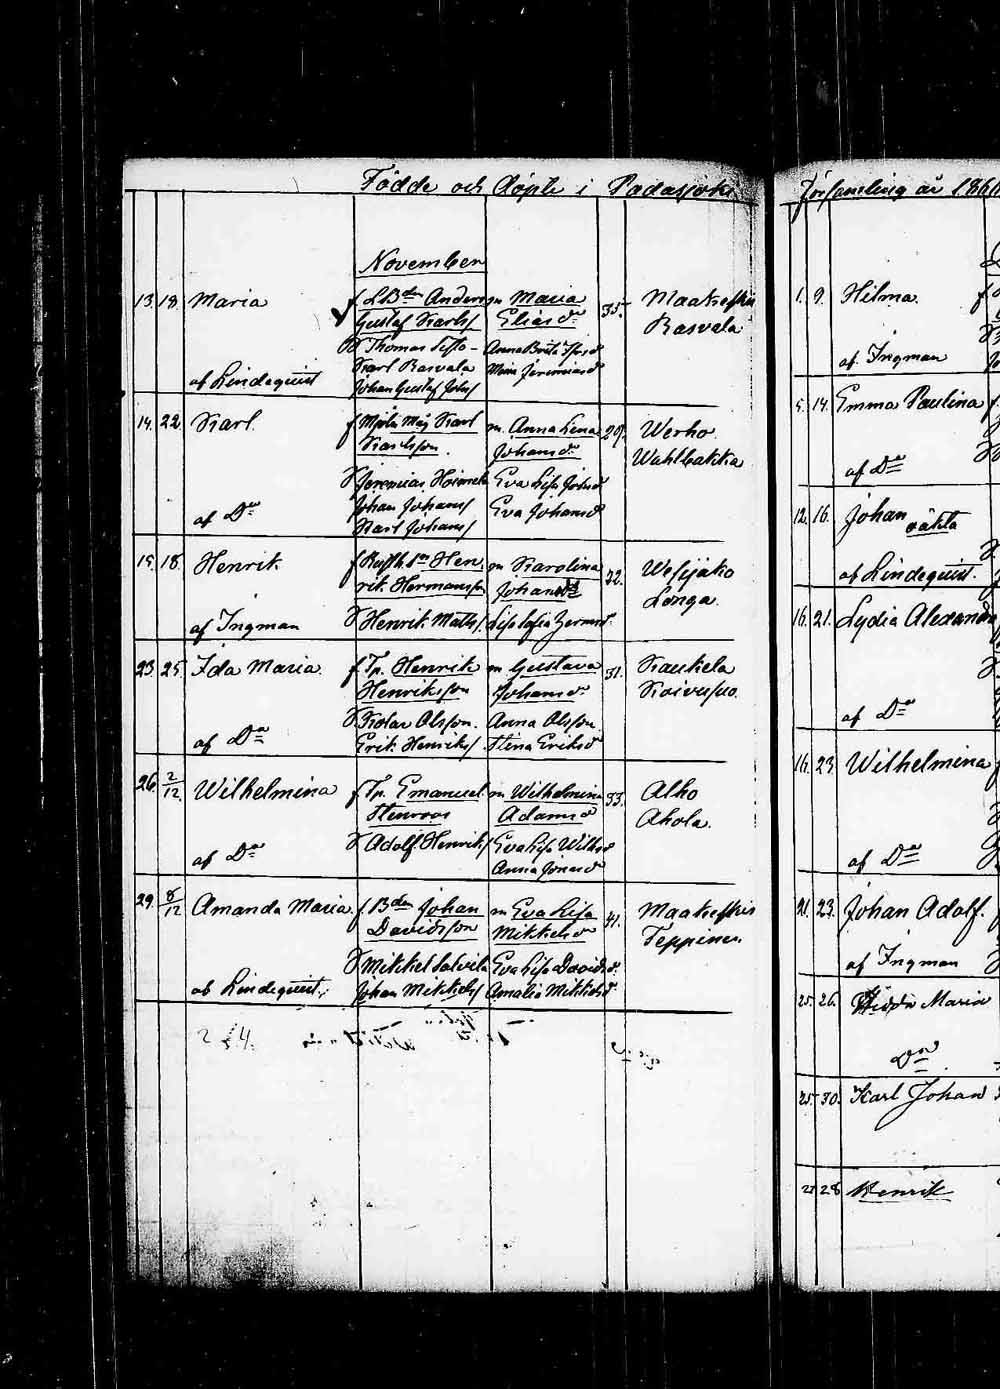 Födde och döpte i Padasjoki
November
13. 18. Maria f. LBdn Anders m Maria 35. Maakeskis
Gustaf Karls/ Elias dr Rasvala
Thomas Anna Brita
Karl Rasvala Maria Jeremiasd
af Lindequist Johan Gustaf Johs/
14. 22 Karl. f Mjöln Måg Karl m. Anna Lena 29. Werho
Karlsson. Johans dr Wahlbakka
Jeremias Heinrik Eva Lisa Johsd
Johan Johans/ Eva Johansd
af Do Karl Johans/
15. 18. Henrik f Hen m Karolina 22. Wesijako
rik Hermansson Johansd Longa.
af Ingman Henrik Matts/ Lisa Sofia
23. 25. Ida Maria. f Tp. Henrik m Gustava 31. Kaukela
Henriksson Johans dr Koivusuo.
Olsson. Anna Olsson
af Do Erik Henriks/ Stina Eriksd
26. 2/12. Wilhelmina f Tp. Emanuel m Wilhelmina 33. Alho
Stenroos Adamsd Ahola.
Adolf Henriks/ Eva Lisa Wilhsd
af Do Anna Jonasd
29. 8/12 Amanda Maria f. Bdn Johan m Eva Lisa 41. Maakeskis
Davidsson Mikkelsd Teppinen
Mikkel Eva Lisa Davidsd.
af Lindequist. Johan Mikkels/ Amalia Mikkelsd
församling år 186
1. 9. Hilma.
af. Ingman
5. 14. Emma Paulina
af Do
12. 16. Johan
oäkta
af Lindequist.
16. 21. Lydia Alexandra
af Do
16. 23. Wilhelmina
af Do
21. 23. Johan Adolf.
af Ingman
25. 26. Maria
Do
25. 30. Karl Johan
28 Henrik